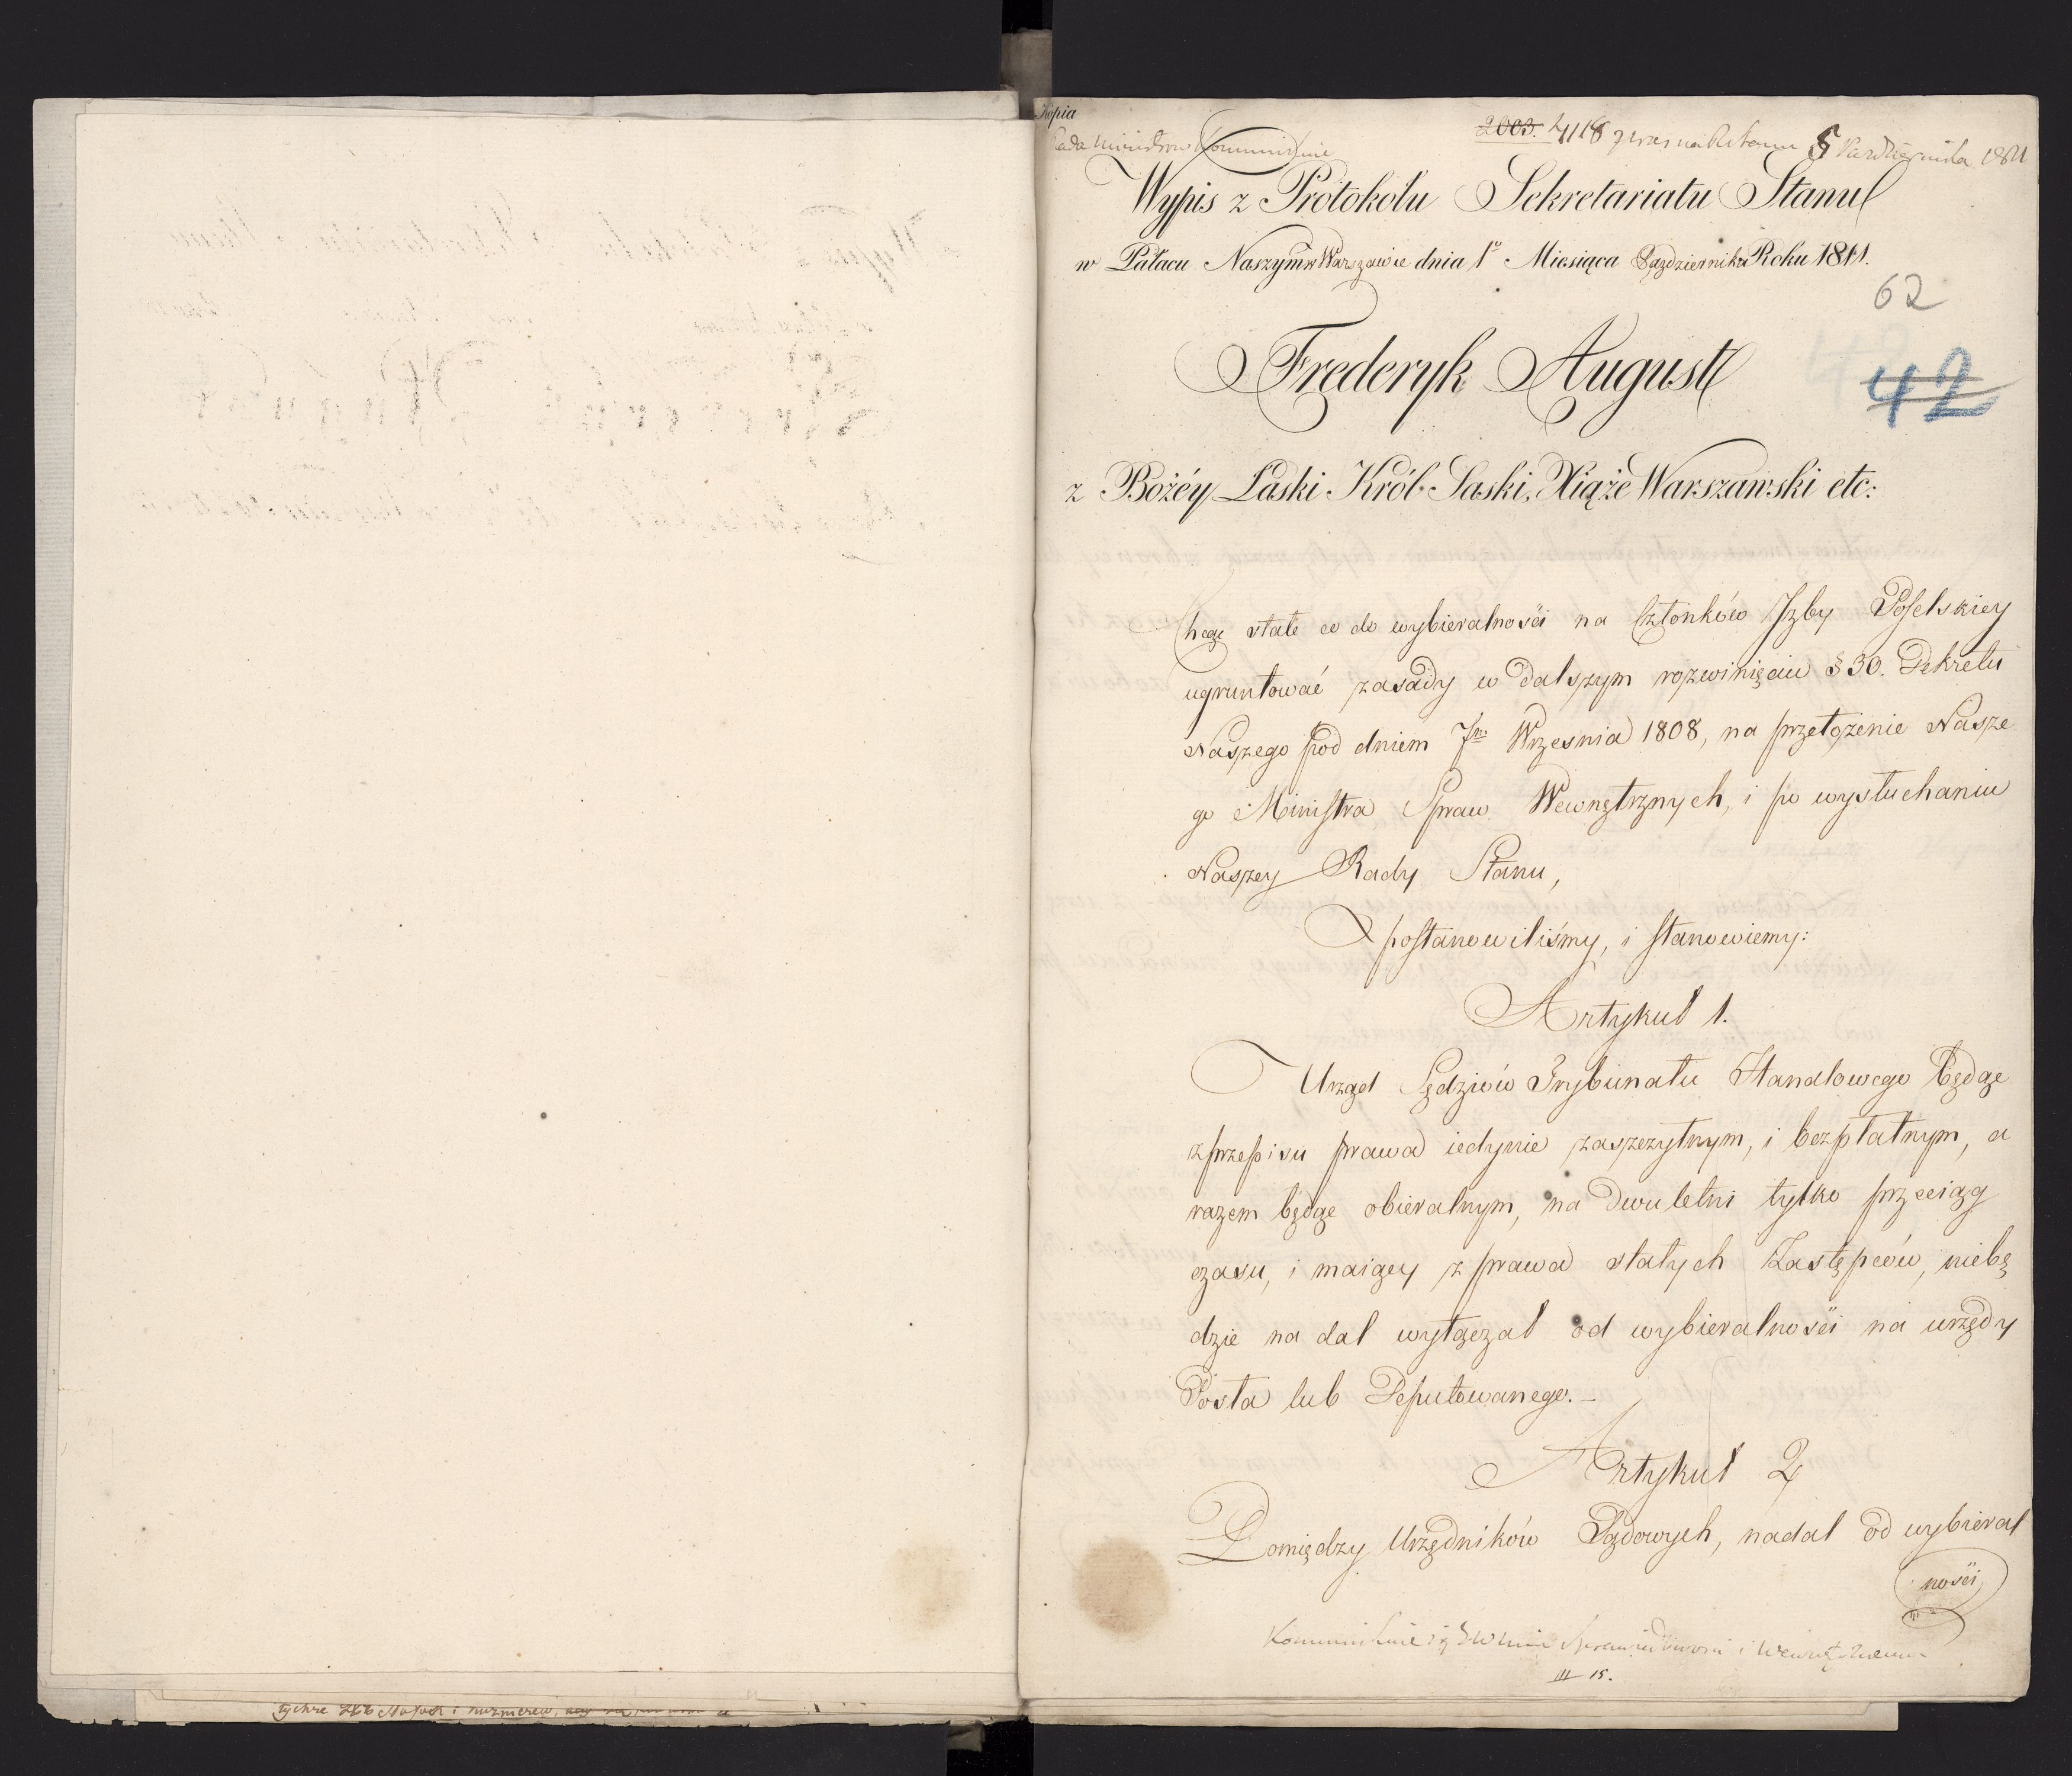 Kopia
Rada Ministrow Kommunikuie
2003. 4118 5 Października 1811
Wypis z Protokołu Sekretariatu Stanu
w Pałacu Naszym w Warszawie dnia 1º Miesiąca Października Roku 1811.
62
42
Frederyk August
z Bożéy Łaski Król Saski, Xiąże Warszawski etc:
Chcąc stałe co do wybieralności na Członków Izby Poselskiey
ugruntować zasady w dalszym rozwinięciu § 30. Dekretu
Naszego pod dniem 7m Wrzesnia 1808, na przełożenie Nasze
go Ministra Spraw Wewnętrznych, i po wysłuchaniu
Naszey Rady Stanu,
postanowiliśmy, i stanowiemy:
Artykuł 1.
Urząd Sędziów Trybunału Handlowego będąc
z przepisu prawa iedynie zaszczytnym, i bezpłatnym, a
razem będąc obieralnym, na dwuletni tylko przeciąg
czasu, i maiący z prawa stałych Zastępców, niebę
dzie na dal wyłączał od wybieralności na urzędy
Posła lub Deputowanego.-
Artykuł 2
Pomiędzy Urzędników Sądowych, nadal od wybieral
ności
Kommunikuie się Sprawiedliwości i
III 15.